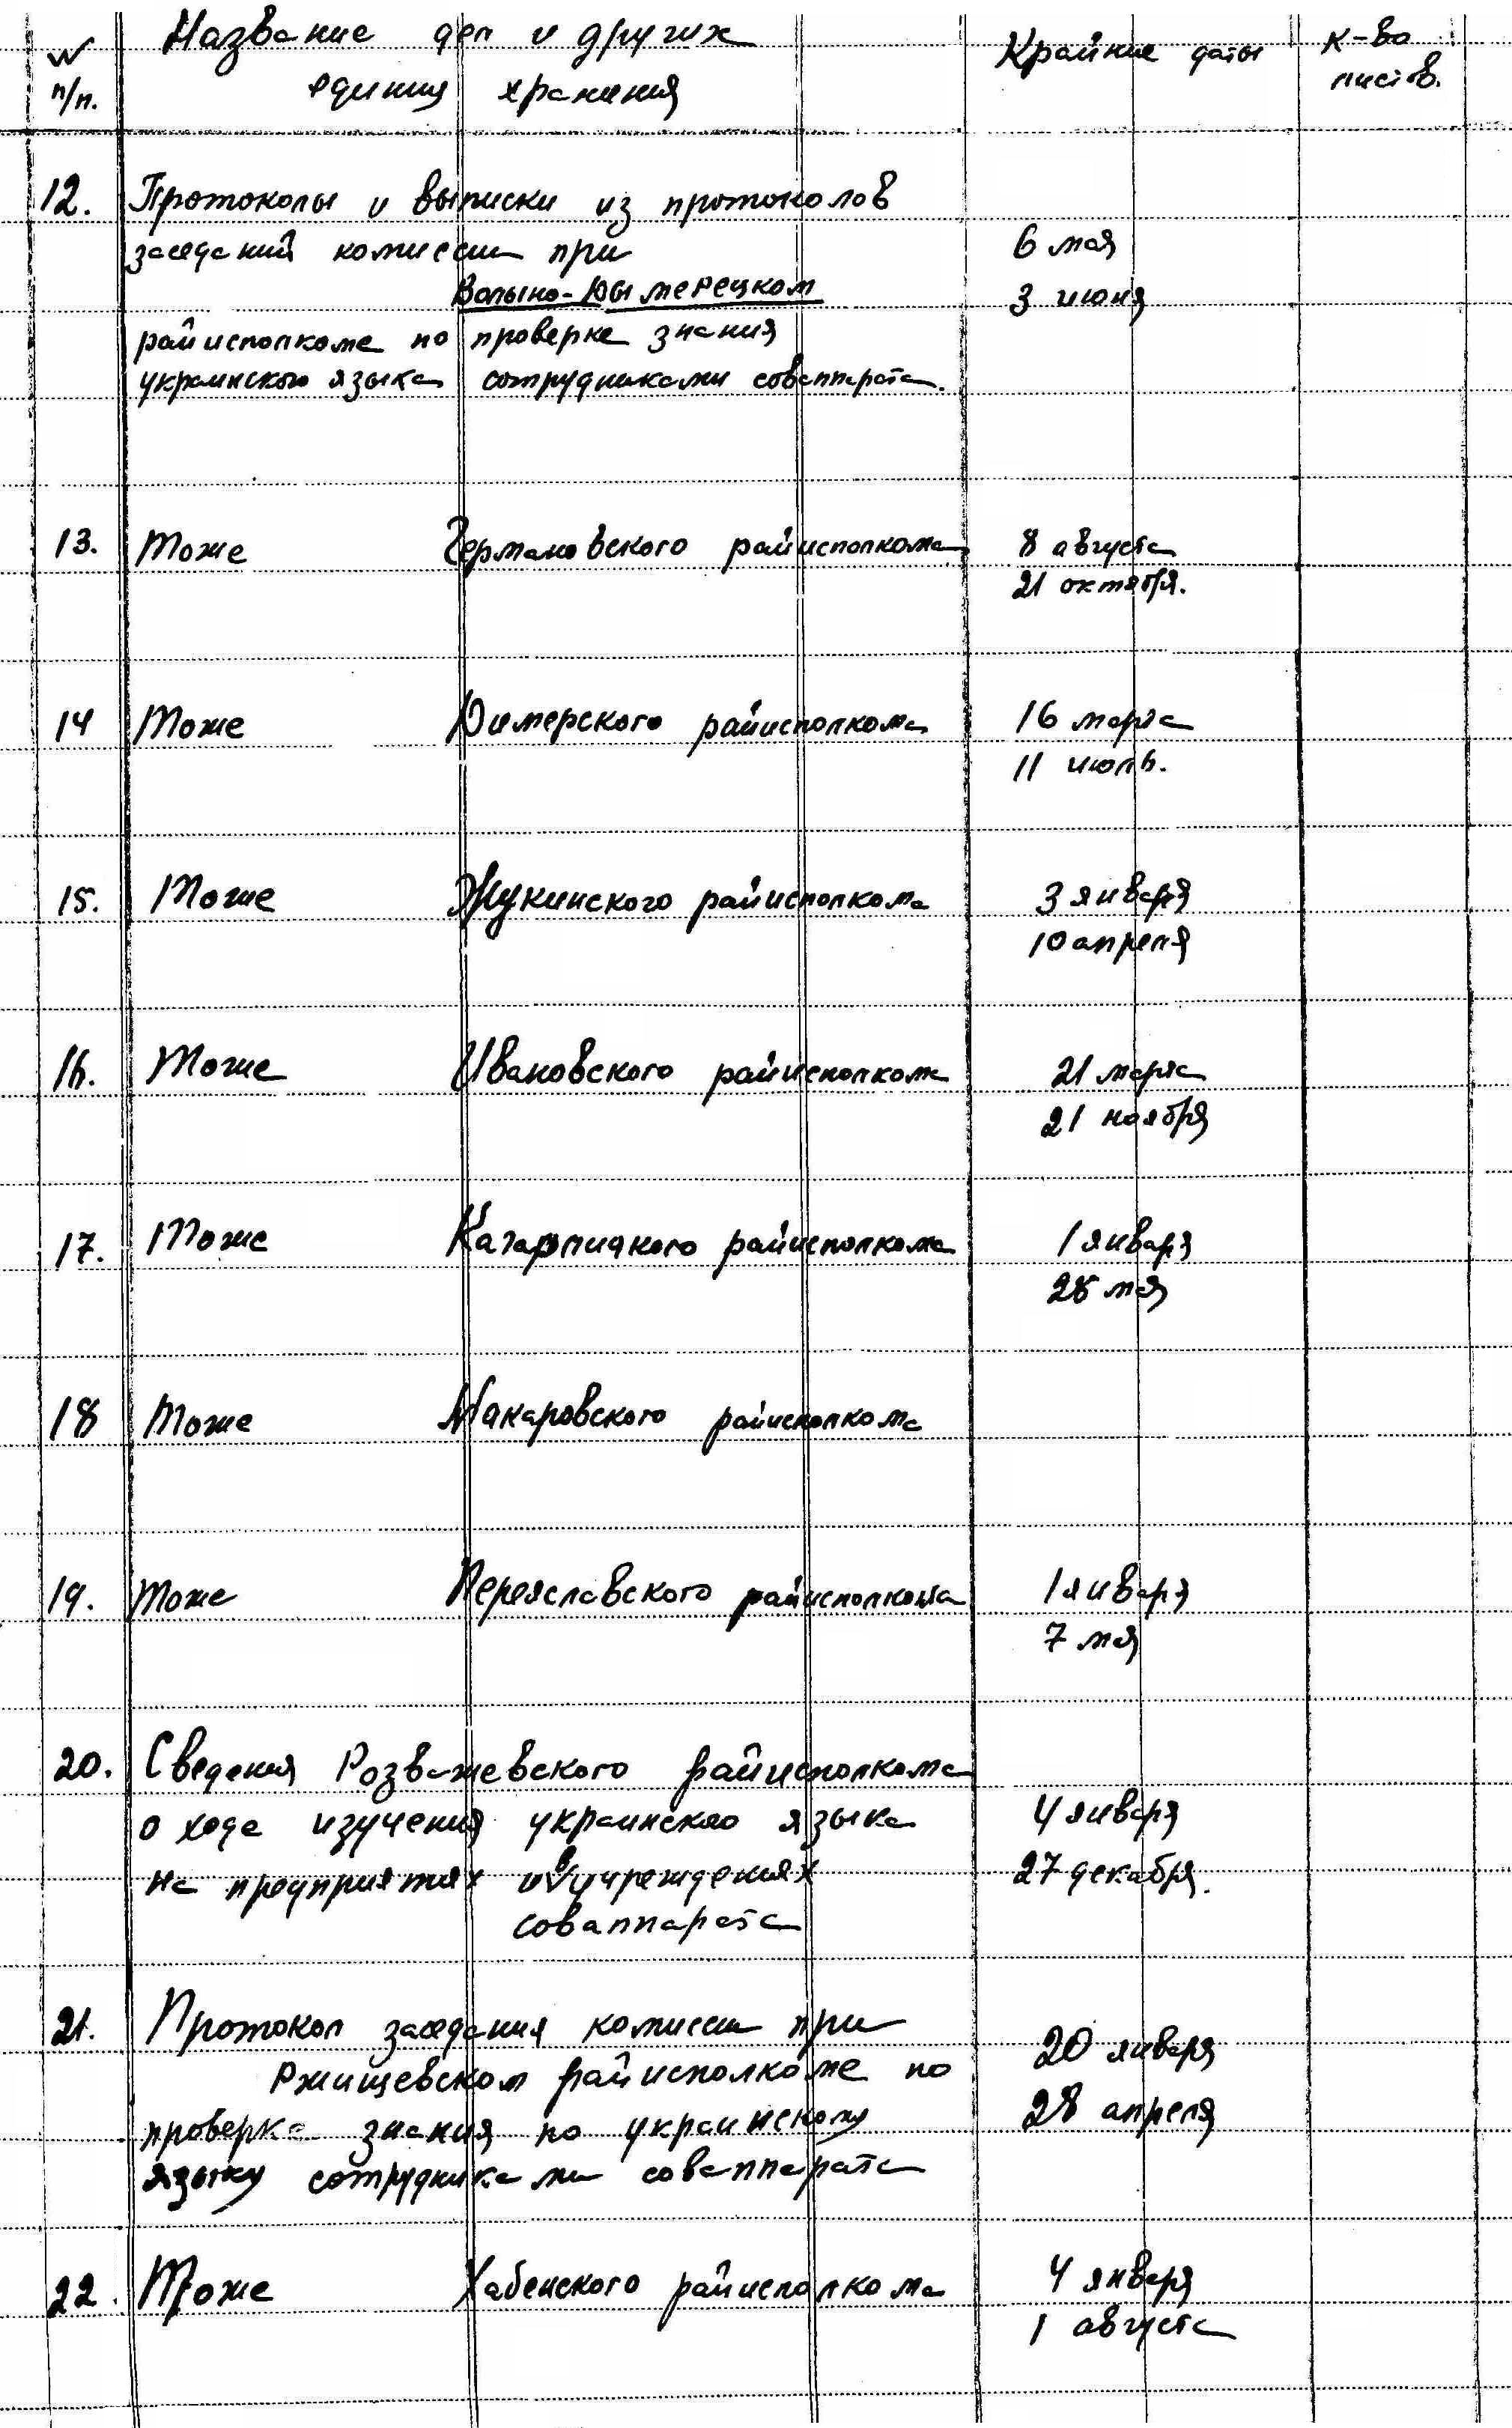 № п/п.
Название дел и других
единиц хранения
Крайние даты
к-во
листов.
12. Протоколы и выписки из протоколов
заседаний комиссии при
6 мая
Волыно-Дымерецком
3 июня
райисполкоме по проверке знания
украинского языка сотрудниками совappарата.
13. Тоже Германовского райисполкома 8 августа
21 октября.
14 Тоже Димерского райисполкома 16 марта
11 июль.
15. Тоже Жукинского райисполкома 3 января
10 апреля
16. Тоже Ивановского райисполкома 21 марта
21 ноября
17. Тоже Кагарлицкого райисполкома 1 января
28 мая
18 Тоже Макаровского райисполкома
19. Тоже Переяславского райисполкома 1 января
7 мая
20. Сведения Розважевского райисполкома
о ходе изучения украинского языка 4 января
на предприятиях и в учреждениях 27 декабря.
соваппарата
21. Протокол заседания комиссии при 20 января
Ржищевском райисполкоме по
проверке знания по украинскому 28 апреля
языку сотрудниками соваппарата
22. Тоже Хабенского райисполкома 4 января
1 августа